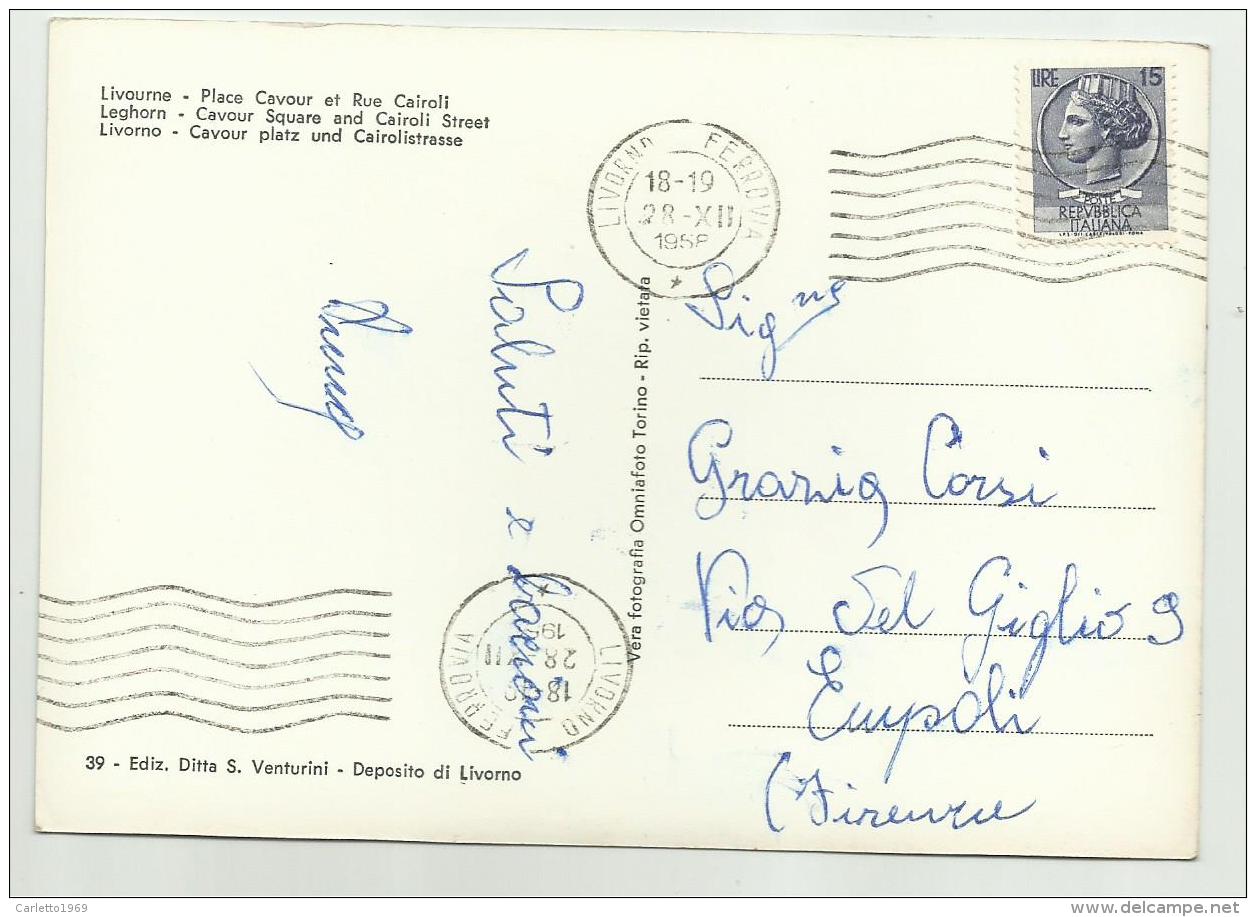 Livourne - Place Cavour et Rue Cairoli
Leghorn - Cavour Square and Cairoli Street
Livorno - Cavour platz und Cairolistrasse
LIVORNO FERROVIA
18-19
28-XII
1958
LIRE 15
POSTE
REPVBBLICA
ITALIANA
Saluti e bacioni
Vera fotografia Omniafoto Torino - Rip. vietata
Sig.na
Grazia Corsi
Via Del Giglio 9
Empoli
(Firenze
LIVORNO FERROVIA
18-19
28-XII
195
39 - Ediz. Ditta S. Venturini - Deposito di Livorno
Carletto1969
delcampe.net